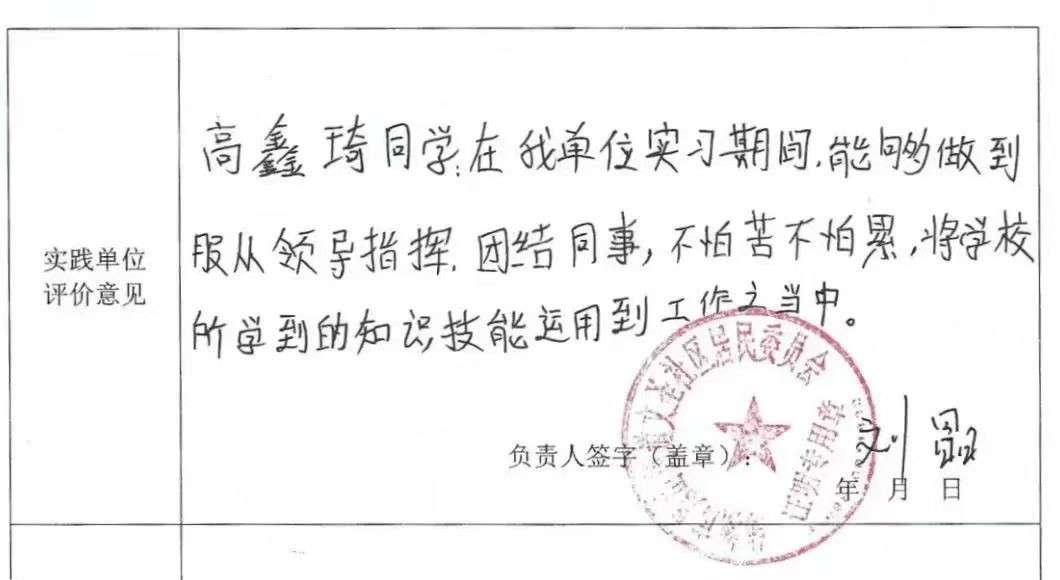 高鑫琦同学:在我单位实习期间,能够做到
服从领导指挥.团结同事,不怕苦不怕累,将学校
所学到的知识技能运用到工作之当中。
实践单位
评价意见
社区居民委员会
证明专用章
负责人签字(盖章):
刘
年 月 日